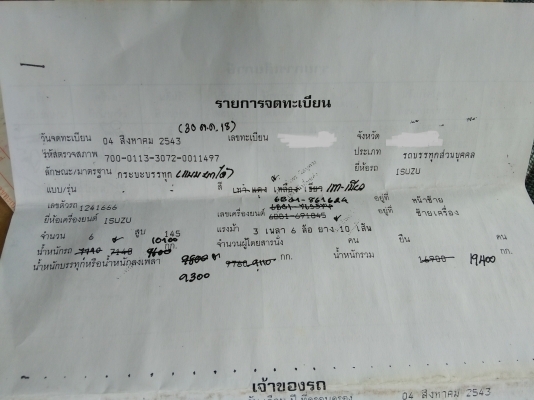 รายการจดทะเบียน
(30 ต.ค. 18)
วันจดทะเบียน 04 สิงหาคม 2543 เลขทะเบียน จังหวัด
รหัสตรวจสภาพ 700-0113-3072-0011497 ประเภท รถบรรทุกส่วนบุคคล
ลักษณะ/มาตรฐาน กระบะบรรทุก สี เทา แดง เหลือง เขียว เทา-เขียว ยี่ห้อรถ ISUZU
แบบ/รุ่น
เลขตัวรถ 1241666 อยู่ที่ หน้าซ้าย
ยี่ห้อเครื่องยนต์ ISUZU เลขเครื่องยนต์ 6BD1-691045 อยู่ที่ ซ้ายเครื่อง
จำนวน 6 สูบ 145 แรงม้า 3 เพลา 6 ล้อ ยาง 10 เส้น
น้ำหนักรถ 7140 7140 9600 10100 กก. จำนวนผู้โดยสารนั่ง คน ยืน คน
น้ำหนักบรรทุกหรือน้ำหนักลงเพลา 9800 9760 9,110 กก. น้ำหนักรวม 16900 19,400 กก.
9,300
เจ้าของรถ
04 สิงหาคม 2543